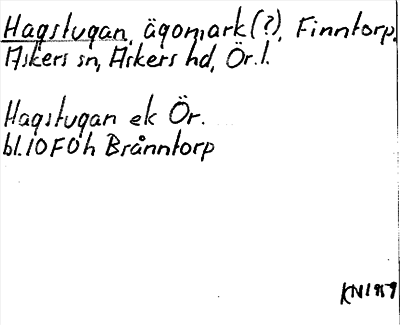 Hagstugan, ägomark(?), Finntorp,
Askers sn, Askers hd, Ör.l.
Hagstugan ek Ör.
bl.10F0h Brånntorp
KN1959